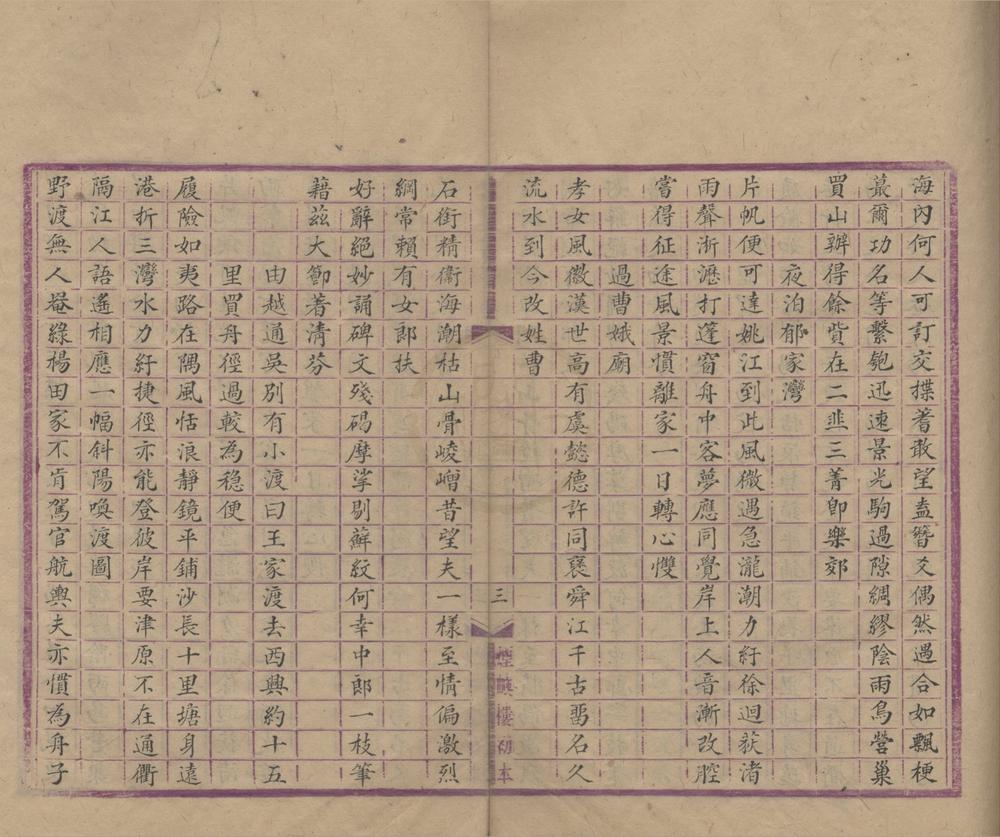 海內何人可訂交揲蓍敢望盍簪爻偶然遇合如飄梗
蕞爾功名等繫匏迅速景光駒過隙綢繆陰雨鳥營巢
買山辦得餘貲在二韭三菁即樂郊
夜泊郁家灣
片帆便可達姚江到此風微遇急瀧潮力紆徐迴荻渚
雨聲淅瀝打篷窗舟中客夢應同覺岸上人音漸改腔
嘗得征途風景慣離家一日轉心慡
過曹娥廟
孝女風徽漢世高有虞懿德許同襃舜江千古畱名久
流水到今改姓曹
三
煙嶼樓初本
石銜精衞海潮枯山骨崚嶒昔望夫一樣至情偏激烈
綱常賴有女郎扶
好辭絕妙誦碑文殘碣摩挲剔蘚紋何幸中郎一枝筆
藉茲大節著清芬
由越通吳別有小渡曰王家渡去西興約十五
里買舟徑過較為穩便
履險如夷路在隅風恬浪靜鏡平鋪沙長十里塘身遠
港折三灣水力紆捷徑亦能登彼岸要津原不在通衢
隔江人語遙相應一幅斜陽喚渡圖
野渡無人菴綠楊田家不肯駕官航輿夫亦慣為舟子